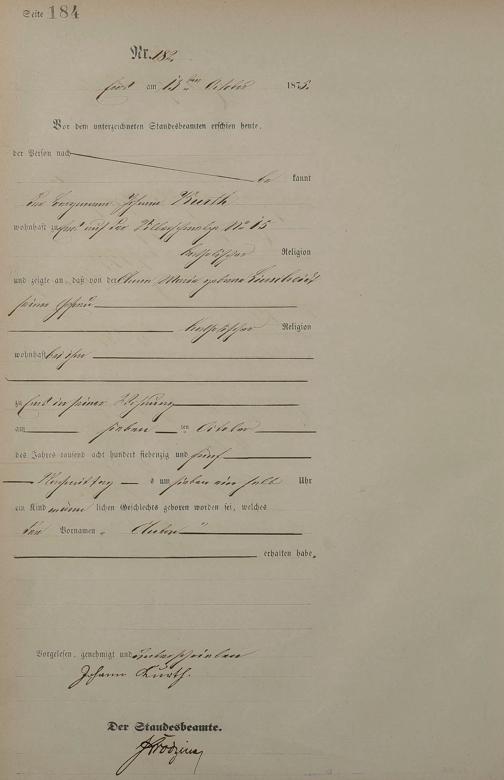 Seite 184
Nr. 182
am 13ten October 1875.
Vor dem unterzeichneten Standesbeamten erschien heute,
der Person nach
be kannt
der Bergmann Johann Kurth
wohnhaft zu auf der No 15
katholischer Religion
und zeigte an, daß von der Anna Maria geborene
seiner Ehefrau
katholischer Religion
wohnhaft bei ihm
zu in seiner Wohnung
am sieben ten October
des Jahres tausend acht hundert siebenzig und fünf
Nachmittags um sieben ein halb Uhr
ein Kind männ lichen Geschlechts geboren worden sei, welches
den Vornamen „ Anton "
erhalten habe.
Vorgelesen, genehmigt und unterschrieben
Johann Kurth.
Der Standesbeamte.